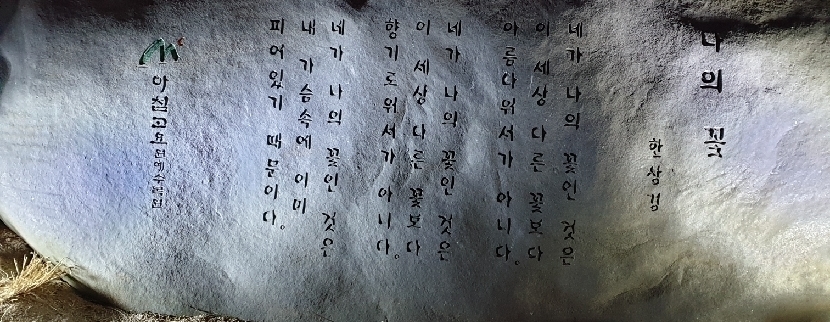 나의 꽃
한상경
네가 나의 꽃인 것은
이 세상 다른 꽃보다
아름다워서가 아니다.
네가 나의 꽃인 것은
이 세상 다른 꽃보다
향기로워서가 아니다.
네가 나의 꽃인 것은
내 가슴속에 이미
피어있기 때문이다.
아침고요원예수목원